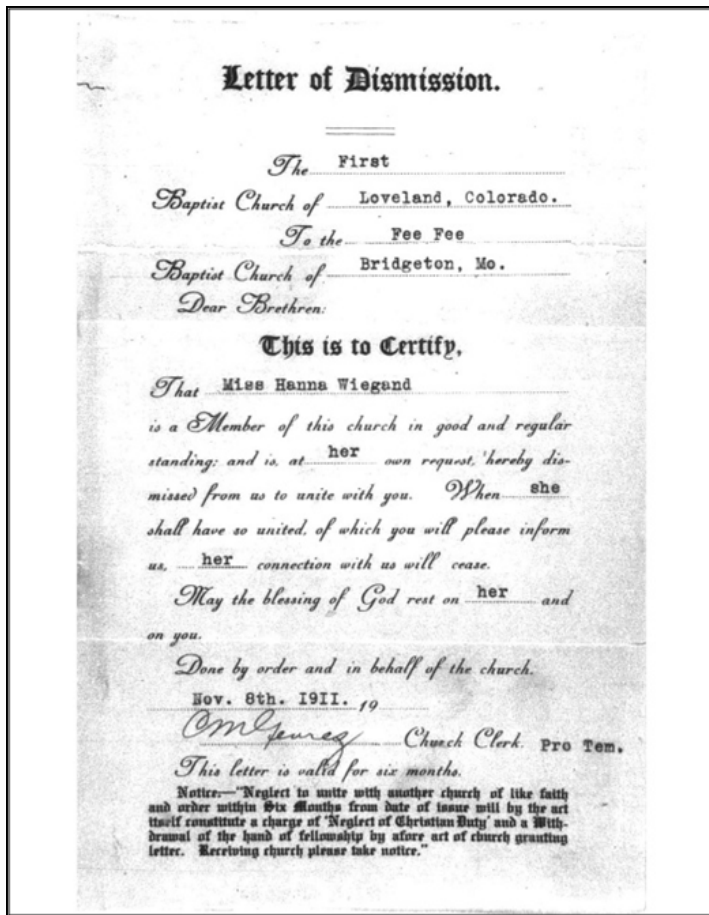 Letter of Dismission.
The First
Baptist Church of Loveland, Colorado.
To the Fee Fee
Baptist Church of Bridgeton, Mo.
Dear Brethren:
This is to Certify,
That Miss Hanna Wiegand
is a Member of this church in good and regular
standing; and is, at her own request, hereby dis-
missed from us to unite with you. When she
shall have so united, of which you will please inform
us, her connection with us will cease.
May the blessing of God rest on her and
on you.
Done by order and in behalf of the church.
Nov. 8th. 1911. 19
Church Clerk. Pro Tem.
This letter is valid for six months.
Notice:—"Neglect to unite with another church of like faith
and order within Six Months from date of issue will by the act
itself constitute a charge of 'Neglect of Christian Duty' and a With-
drawal of the hand of fellowship by afore act of church granting
letter. Receiving church please take notice."